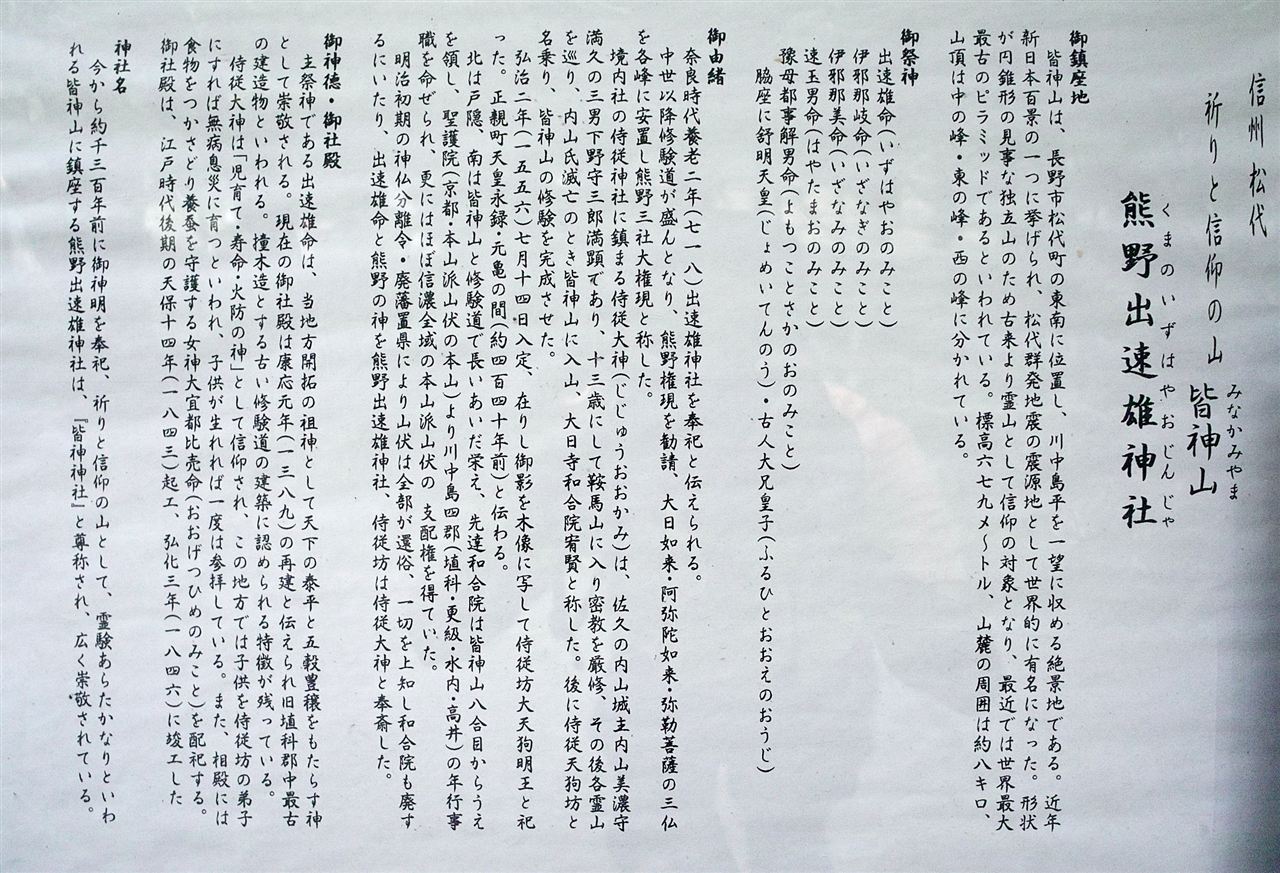 信州 松代
祈りと信仰の山 皆神山
みなかみやま
くまのいずはやおじんじゃ
熊野出速雄神社
御鎮座地
皆神山は、長野市松代町の東南に位置し、川中島平を一望に収める絶景地である。近年
新日本百景の一つに挙げられ、松代群発地震の震源地として世界的に有名になった。形状
が円錐形の見事な独立山のため古来より霊山として信仰の対象となり、最近では世界最大
最古のピラミッドであるといわれている。標高六七九メ〜トル、山麓の周囲は約八キロ、
山頂は中の峰・東の峰・西の峰に分かれている。
御祭神
出速雄命(いずはやおのみこと)
伊邪那岐命(いざなぎのみこと)
伊邪那美命(いざなみのみこと)
速玉男命(はやたまおのみこと)
豫母都事解男命(よもつことさかのおのみこと)
脇座に舒明天皇(じょめいてんのう)・古人大兄皇子(ふるひとおおえのおうじ)
御由緒
奈良時代養老二年(七一八)出速雄神社を奉祀と伝えられる。
中世以降修験道が盛んとなり、熊野権現を勧請、大日如来・阿弥陀如来・弥勒菩薩の三仏
を各峰に安置し熊野三社大権現と称した。
境内社の侍従神社に鎮まる侍従大神(じじゅうおおかみ)は、佐久の内山城主内山美濃守
満久の三男下野守三郎満顕であり、十三歳にして鞍馬山に入り密教を厳修、その後各霊山
を巡り、内山氏滅亡のとき皆神山に入山、大日寺和合院宥賢と称した。後に侍従天狗坊と
名乗り、皆神山の修験を完成させた。
弘治二年(一五五六)七月十四日入定、在りし御影を木像に写して侍従坊大天狗明王と祀
った。正親町天皇永録・元亀の間(約四百四十年前)と伝わる。
北は戸隠、南は皆神山と修験道で長いあいだ栄え、先達和合院は皆神山八合目からうえ
を領し、聖護院(京都・本山派山伏の本山)より川中島四郡(埴科・更級・水内・高井)の年行事
職を命ぜられ、更にはほぼ信濃全域の本山派山伏の、支配権を得ていた。
明治初期の神仏分離令・廃藩置県により山伏は全部が還俗、一切を上知し和合院も廃す
るにいたり、出速雄命と熊野の神を熊野出速雄神社、侍従坊は侍従大神と奉斎した。
御神徳・御社殿
主祭神である出速雄命は、当地方開拓の祖神として天下の泰平と五穀豊穣をもたらす神
として崇敬される。現在の御社殿は康応元年(一三八九)の再建と伝えられ旧埴科郡中最古
の建造物といわれる。撞木造とする古い修験道の建築に認められる特徴が残っている。
侍従大神は「児育て・寿命・火防の神」として信仰され、この地方では子供を侍従坊の弟子
にすれば無病息災に育つといわれ、子供が生れれば一度は参拝している。また、相殿には
食物をつかさどり養蚕を守護する女神大宜都比売命(おおげつひめのみこと)を配祀する。
御社殿は、江戸時代後期の天保十四年(一八四三)起工、弘化三年(一八四六)に竣工した
神社名
今から約千三百年前に御神明を奉祀、祈りと信仰の山として、霊験あらたかなりといわ
れる皆神山に鎮座する熊野出速雄神社は、『皆神神社』と尊称され、広く崇敬されている。